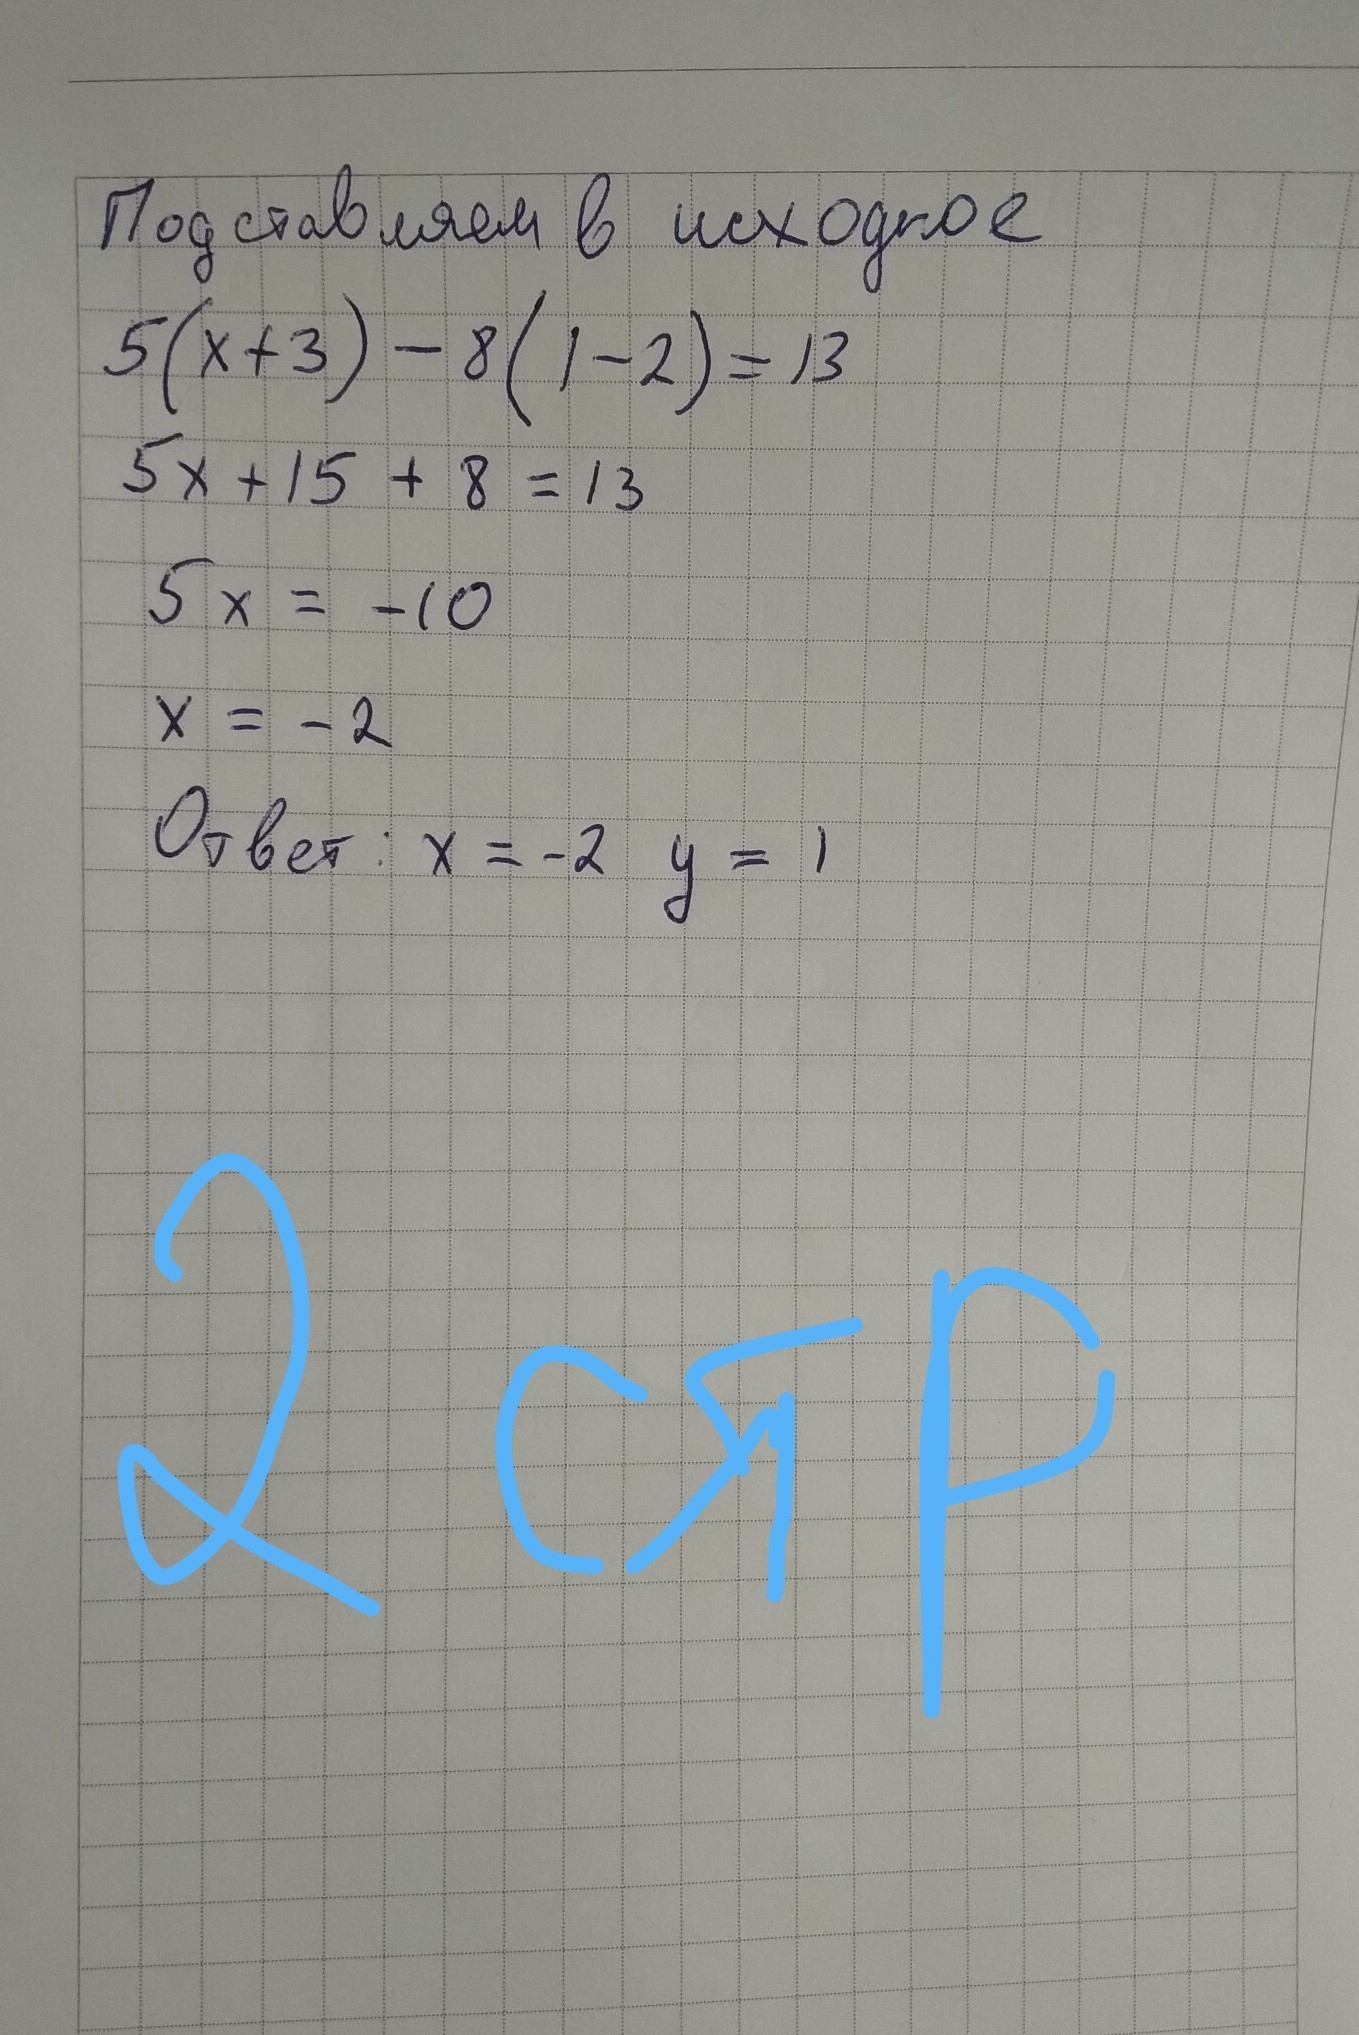 Подставляем в исходное
5(x+3) - 8(1-2) = 13
5x+15 + 8 = 13
5x = -10
x = -2
Ответ: x = -2 y = 1
2 стр